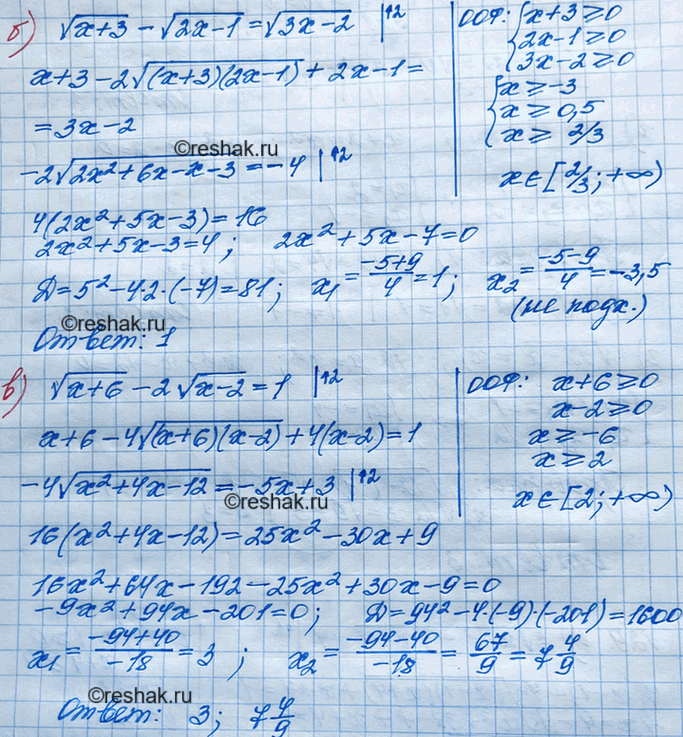 б) √(x+3) − √(2x−1) = √(3x−2) |↑2
ООФ: {x+3 ≥ 0
2x−1 ≥ 0
3x−2 ≥ 0
x+3−2√((x+3)(2x−1)) + 2x−1 =
{x ≥ −3
x ≥ 0,5
x ≥ 2/3
= 3x−2
©reshak.ru
−2√(2x²+6x−x−3) = −4 |↑2
x ∈ [2/3; +∞)
4(2x²+5x−3) = 16
2x²+5x−3 = 4; 2x²+5x−7 = 0
D = 5²−4·2·(−7) = 81; x₁ = (−5+9)/4 = 1; x₂ = (−5−9)/4 = −3,5
(не подх.)
©reshak.ru
Ответ: 1
в) √(x+6) − 2√(x−2) = 1 |↑2
ООФ: x+6 ≥ 0
x−2 ≥ 0
x+6−4√((x+6)(x−2)) + 4(x−2) = 1
x ≥ −6
x ≥ 2
−4√(x²+4x−12) = −5x+3 |↑2
x ∈ [2; +∞)
©reshak.ru
16(x²+4x−12) = 25x²−30x+9
16x²+64x−192−25x²+30x−9 = 0
−9x²+94x−201 = 0; D = 94²−4·(−9)·(−201) = 1600
x₁ = (−94+40)/−18 = 3; x₂ = (−94−40)/−18 = 67/9 = 7 4/9
©reshak.ru
Ответ: 3; 7 4/9